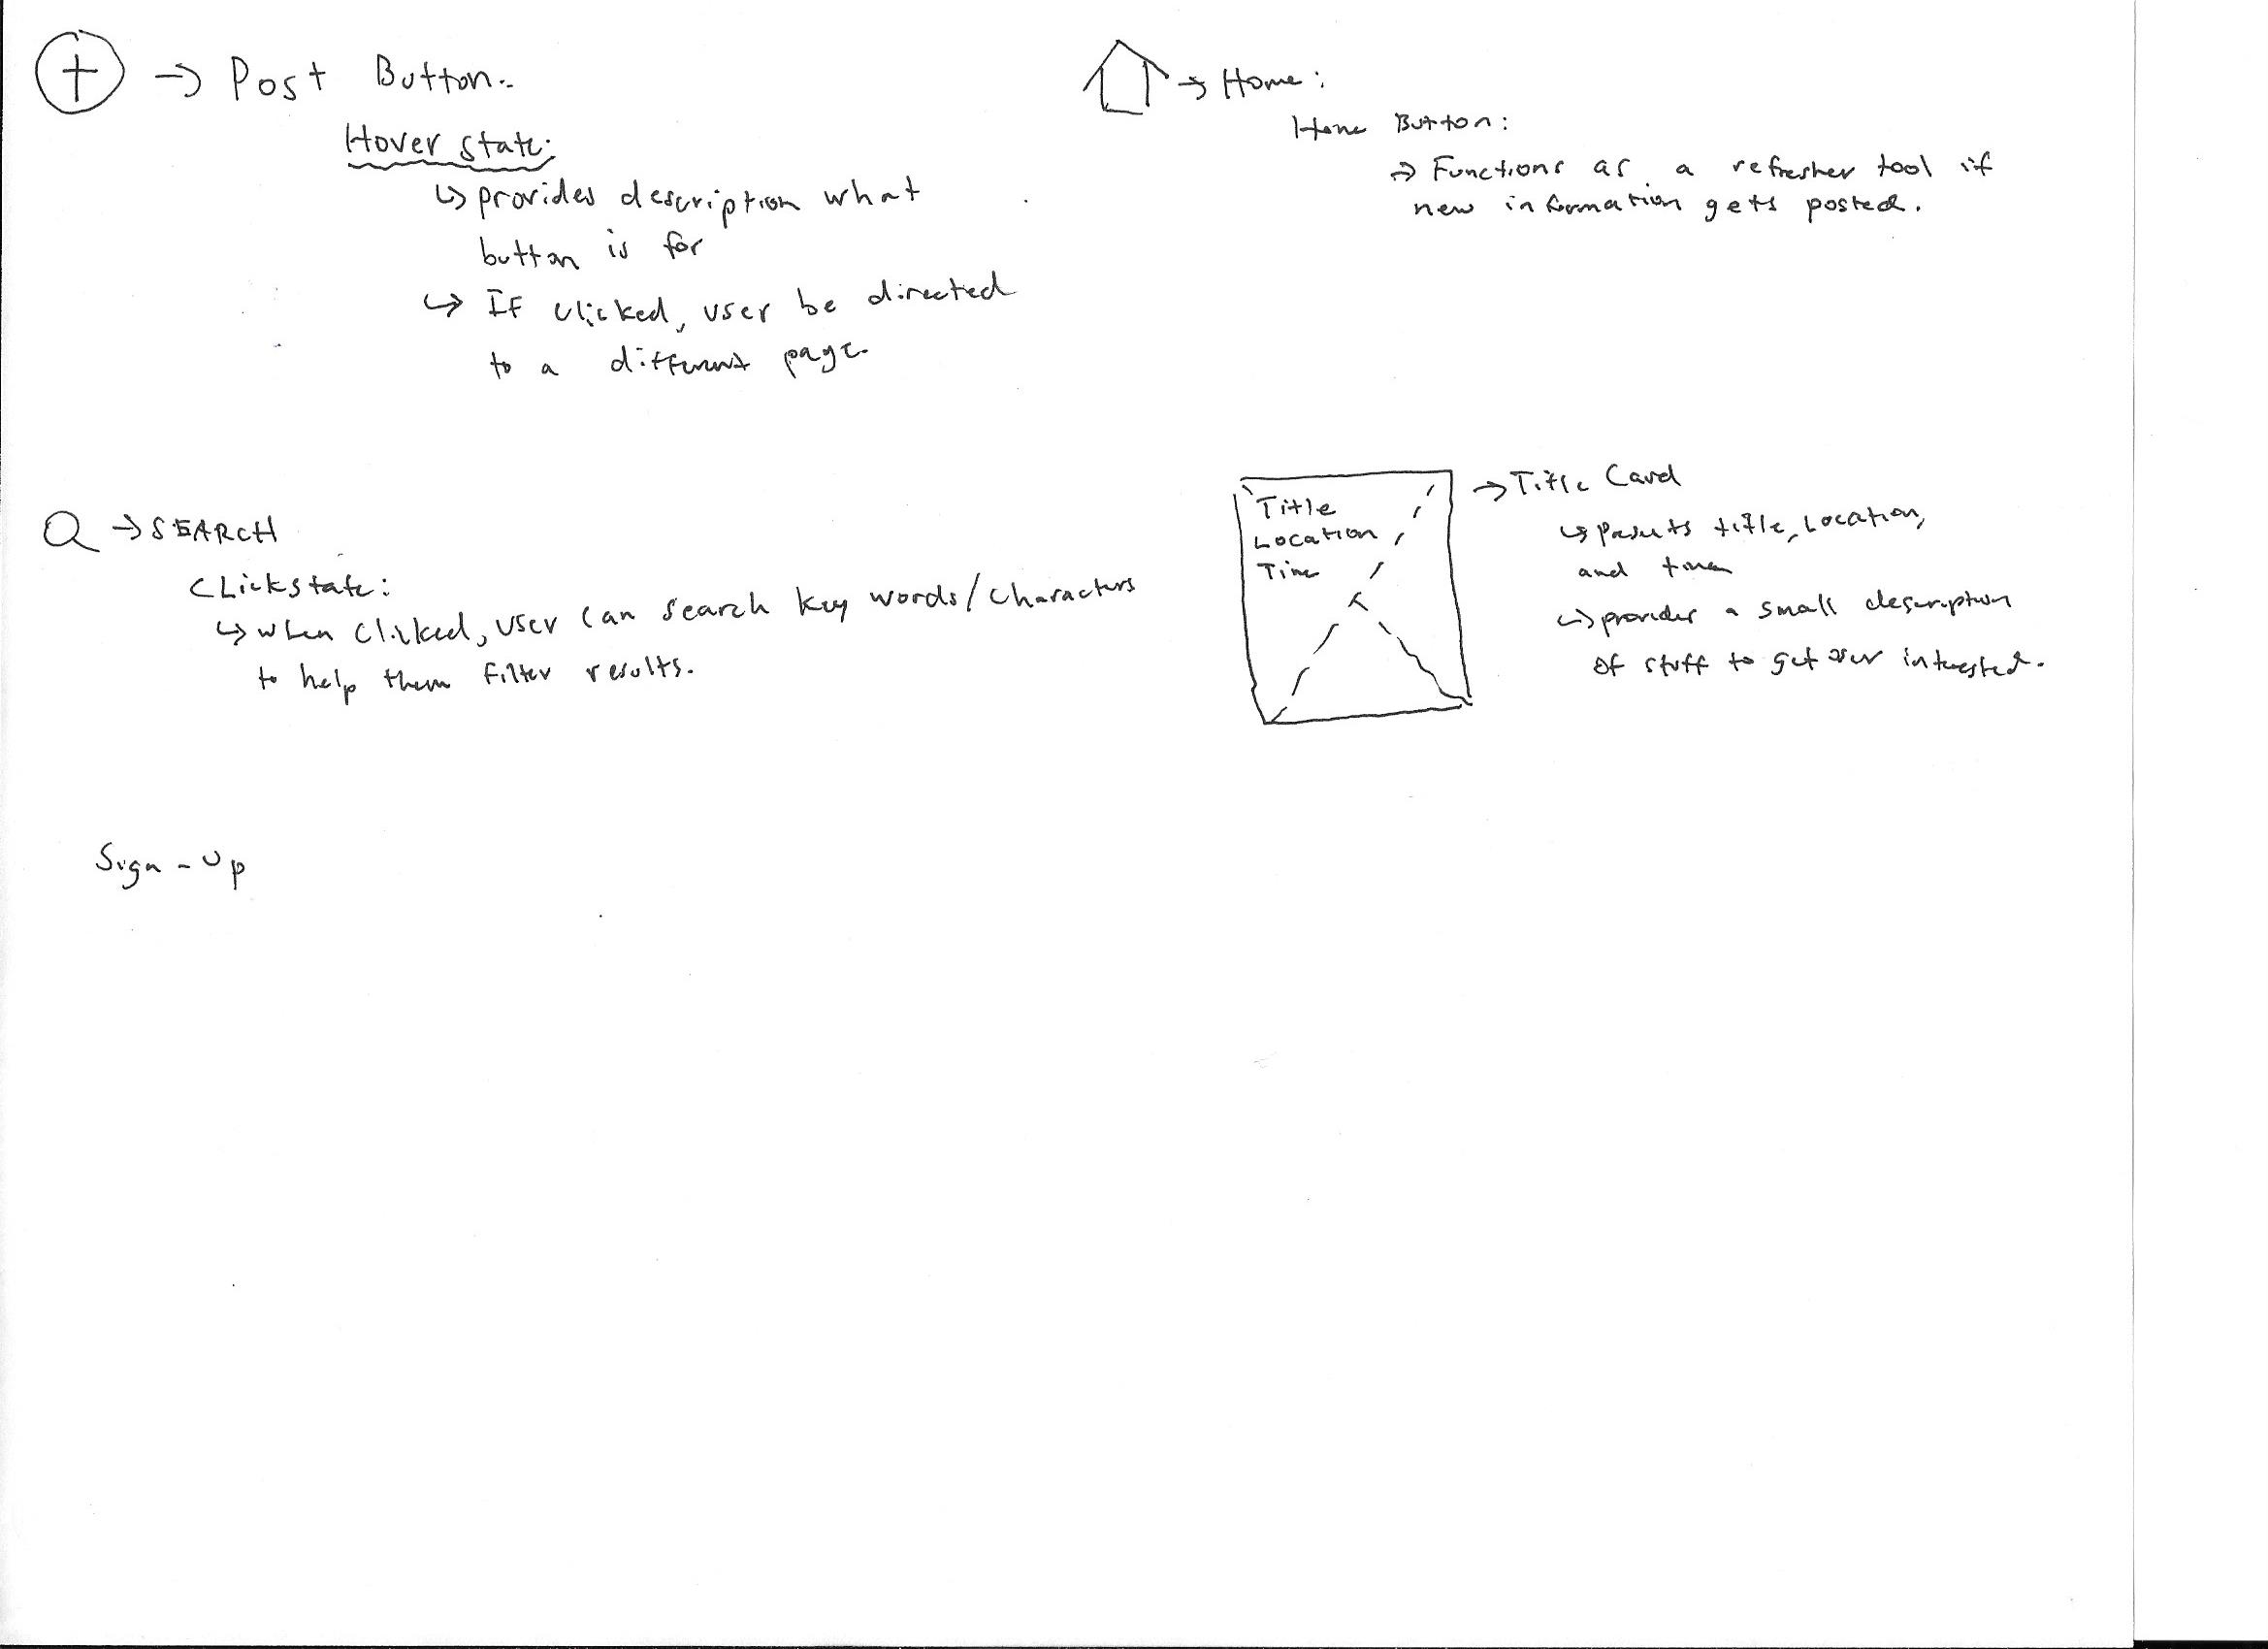 → Post Button:
Hover state:
↳ provides description what
button is for
↳ If clicked, user be directed
to a different page.
→ Home:
Home Button:
→ Functions as a refresher tool if
new information gets posted.
→ SEARCH
Clickstate:
↳ when clicked, user can search key words/characters
to help them filter results.
Title
Location
Time
→ Title Card
↳ title, Location,
and
↳ provides a small description
of stuff to get user interested.
Sign-up